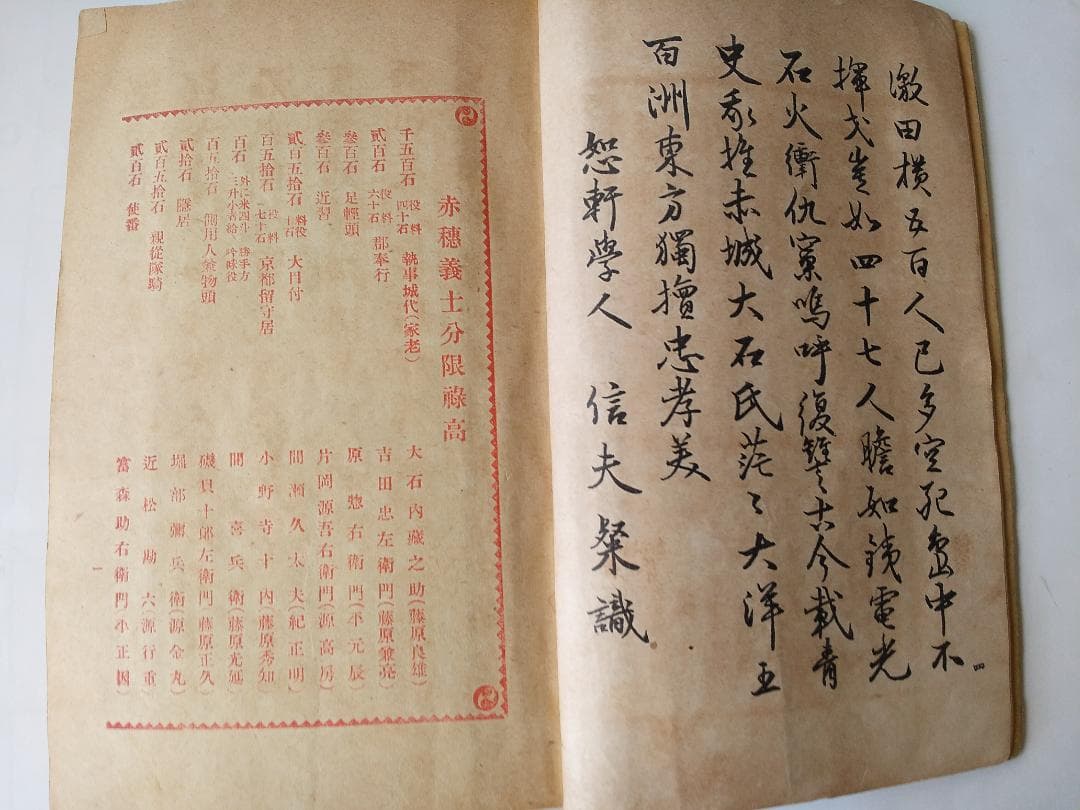 激田横五百人已多空死島中不
揮戈豈如四十七人膽如鐵電光
石火衝仇窠嗚呼復讐古今載青
史推赤城大石氏茫々大洋五
百洲東方獨擅忠孝美
恕軒學人 信夫粲識
赤穗義士分限祿高
千五百石 役料四十石 執事城代(家老) 大石内藏之助(藤原良雄)
貳百石 役料六十石 郡奉行 吉田忠左衛門(藤原兼亮)
參百石 足輕頭 原惣右衛門(平元辰)
參百石 近習 片岡源吾右衛門(源高房)
貳百五拾石 役料十石 大目付 間瀬久太夫(紀正明)
百五拾石 役料七十石 京都留守居 小野寺十内(藤原秀知)
百石 外ニ米四斗三升小者給 勝手方吟味役 間喜兵衛(藤原光延)
百五拾石 側用人兼物頭 磯貝十郎左衛門(藤原正久)
貳拾石 隱居 堀部彌兵衛(源金丸)
貳百五拾石 親從隊騎 近松勘六(源行重)
貳百石 使番 富森助右衛門(小正因)
一